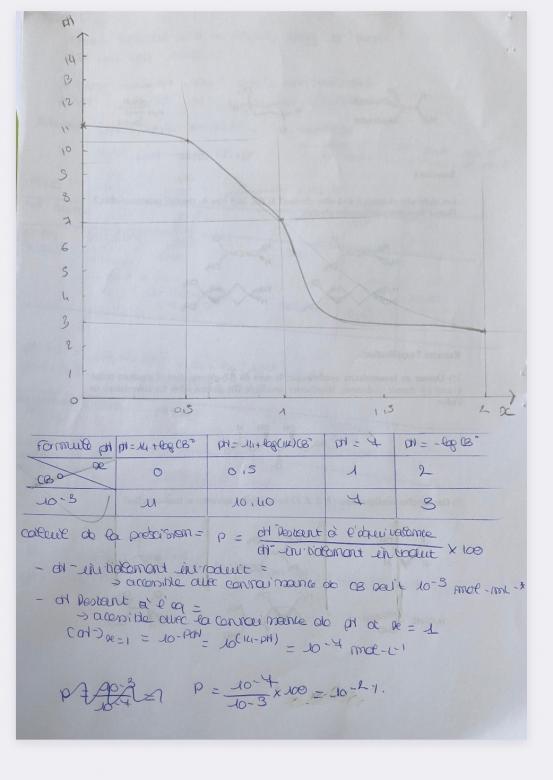 pH
14
13
12
11
10
9
8
7
6
5
4
3
2
1
0
0,5 1 1,5 2 x
Formule pH pH = 14 + log CB° pH = 14 + log(1-x)CB° pH = 7 pH = -log CB°
CB° x 0 0,5 1 2
10-3 11 10,40 7 3
calcul de la précision = P = OH- restant à l'équivalence
OH- initialement introduit × 100
- OH- initialement introduit =
→ accessible avec connaissance de CB soit 10-3
- OH- restant à l'éq =
→ accessible avec la connaissance du pH à x = 1
(OH-)x=1 = 10-pOH = 10(14-pH) = 10-7 mol-L-1
P = 10-7
10-3 × 100 = 10-2 %.